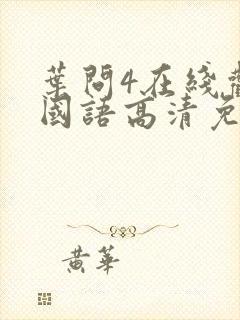 葉問4在綫
國語高清免
黃華